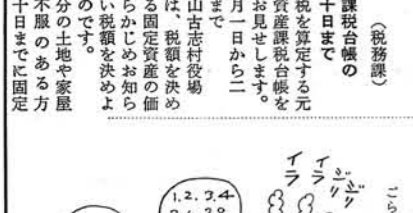 (税務課)
課税台帳の
十日まで
税を算定する元
資産課税台帳を
お見せします。
月一日から二
まで
山古志村役場
は、税額を決め
る固定資産の価
らかじめお知ら
い税額を決めよ
のです。
分の土地や家屋
不服のある方
十日までに固定
ごら
イライラ
ジリジリ
1.2.3.4